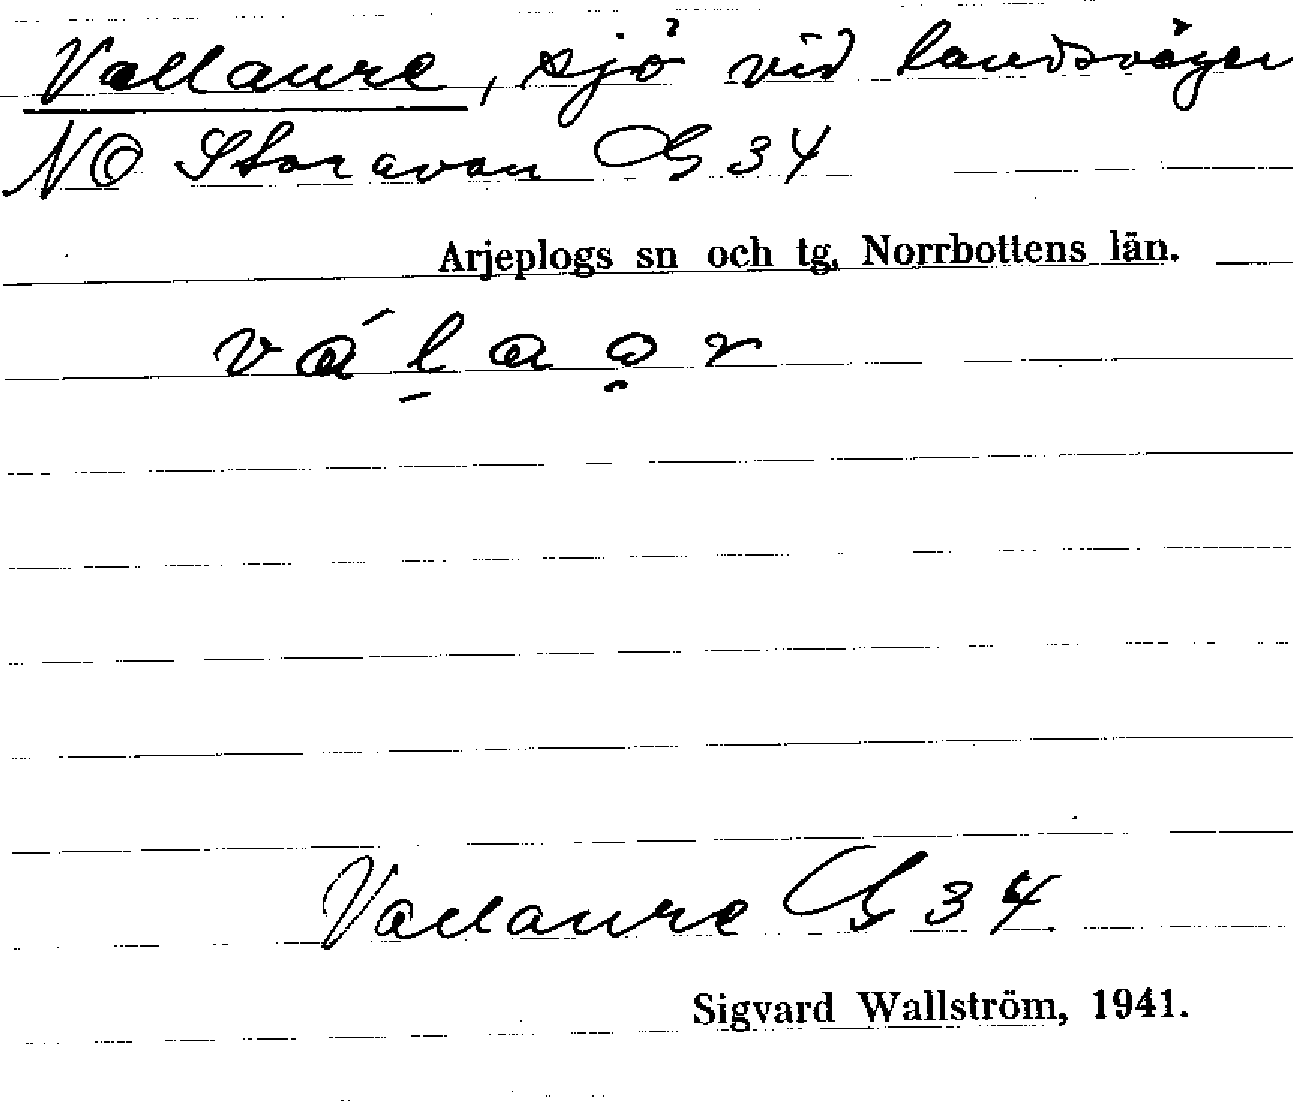 Vallaure, sjö vid landsvägen
NO Storavan G 34
Arjeplogs sn och tg, Norrbottens län.
vála̱o̯r
Vallaure G 34
Sigvard Wallström, 1941.